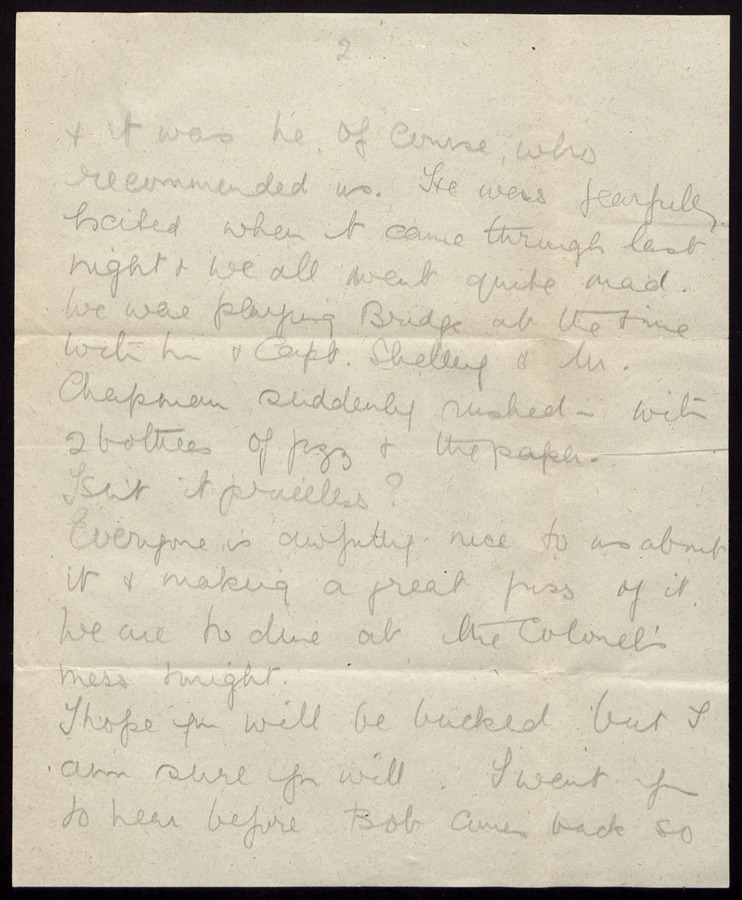 2
& it was he, of course, who
recommended us. He was fearfully
excited when it came through last
night & we all went quite mad.
We were playing Bridge at the time
with him & Capt. Shelley & Mr.
Chapman suddenly rushed in with
2 bottles of fizz & the paper.
Isn't it priceless?
Everyone is awfully nice to us about
it & making a great fuss of it.
We are to dine at the Colonel's
mess tonight.
I hope you will be bucked but I
am sure you will. I want you
to hear before Bob comes back so